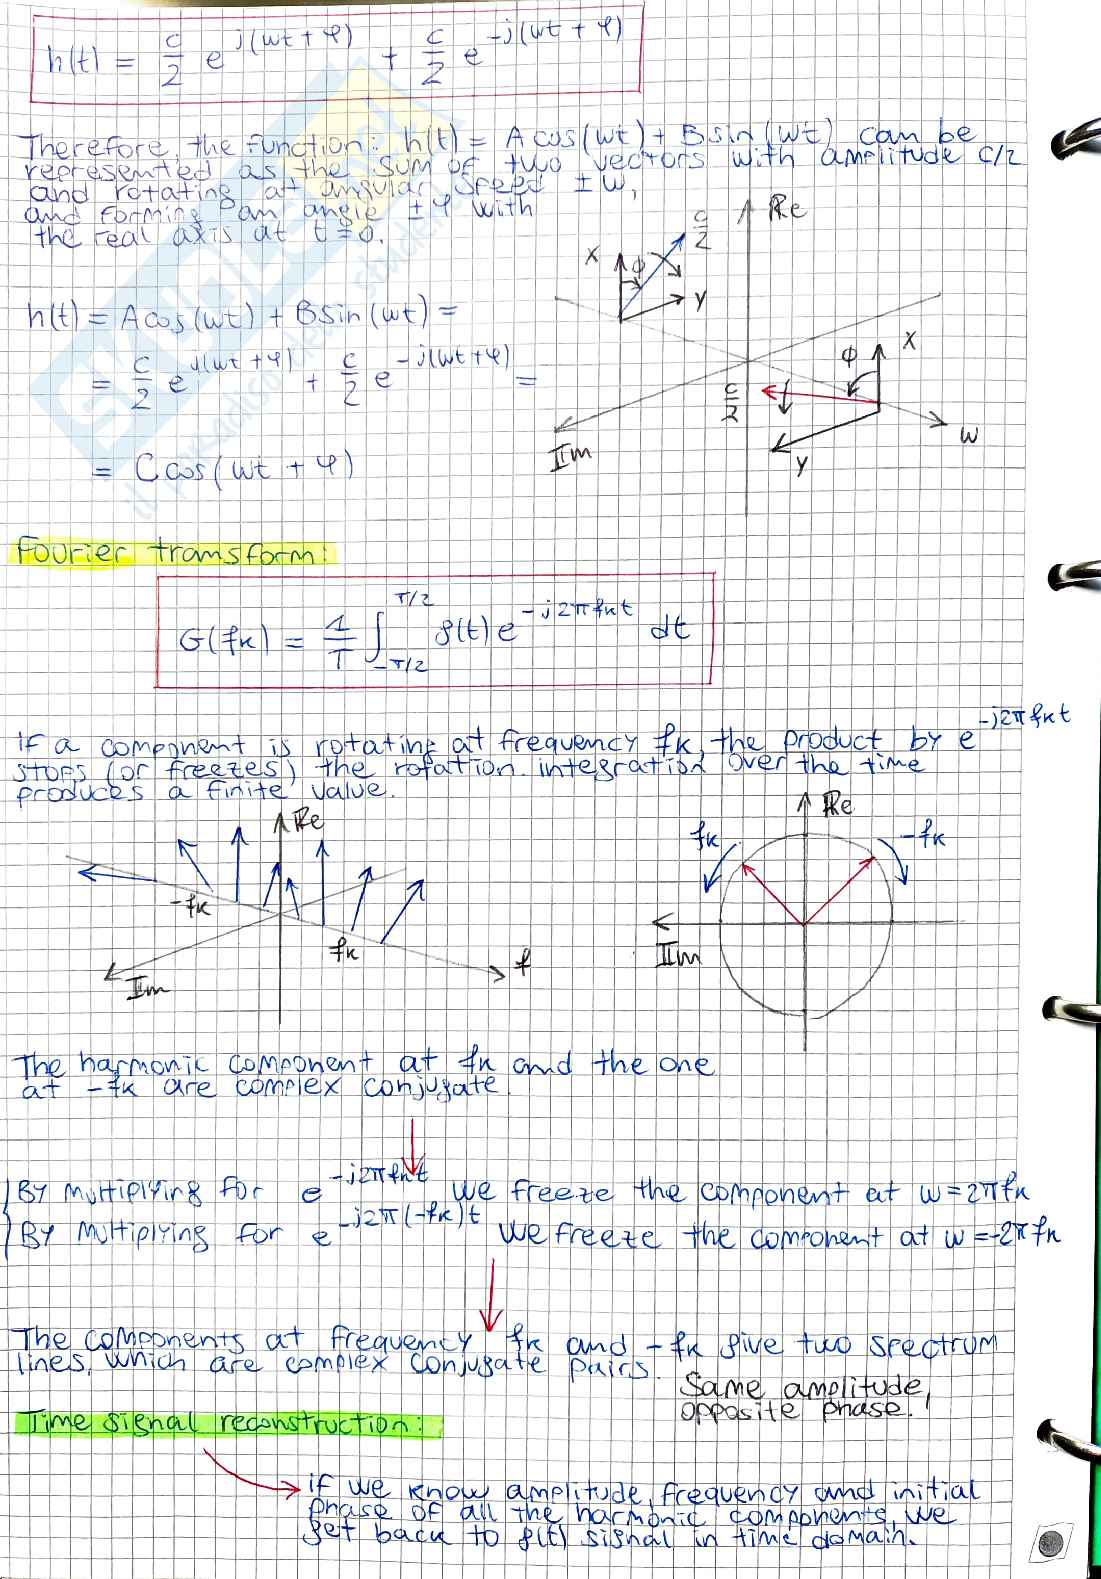 h(t) = c/2 e^{j(ωt + φ)} + c/2 e^{-j(ωt + φ)}
Therefore, the function: h(t) = A cos(ωt) + B sin(ωt) can be
represented as the sum of two vectors with amplitude c/2
and rotating at angular speed ±ω,
and forming an angle ±φ with
the real axis at t=0.
Re
c/2
X
ϕ
Y
h(t) = A cos(ωt) + B sin(ωt) =
= c/2 e^{j(ωt + φ)} + c/2 e^{-j(ωt + φ)} =
= C cos(ωt + φ)
ϕ
X
c/2
ω
Im
Y
Fourier transform:
G(fk) = 1/T ∫_{-T/2}^{T/2} g(t) e^{-j2πfkt} dt
if a component is rotating at frequency fk, the product by e^{-j2πfkt}
stops (or freezes) the rotation. integration over the time
produces a finite value.
Re
-fk
fk
f
Im
Re
fk
-fk
Im
The harmonic component at fk and the one
at -fk are complex conjugate.
By multiplying for e^{-j2πfkt} we freeze the component at ω=2πfk
By multiplying for e^{-j2π(-fk)t} we freeze the component at ω=-2πfk
The components at frequency fk and -fk give two spectrum
lines, which are complex conjugate pairs.
Same amplitude,
opposite phase.!
Time signal reconstruction:
if we know amplitude, frequency and initial
phase of all the harmonic components, we
get back to g(t) signal in time domain.